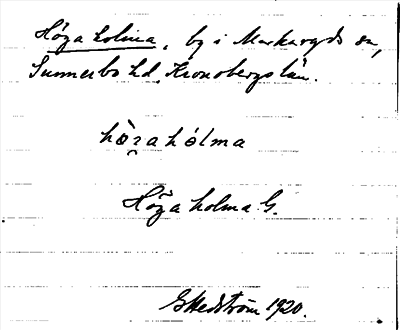 Höga holma, by i Markaryds sn,
Sunnerbo hd, Kronobergs län.
hö̀ʒa hólma
Höga holma G.
G Hedström 1920.